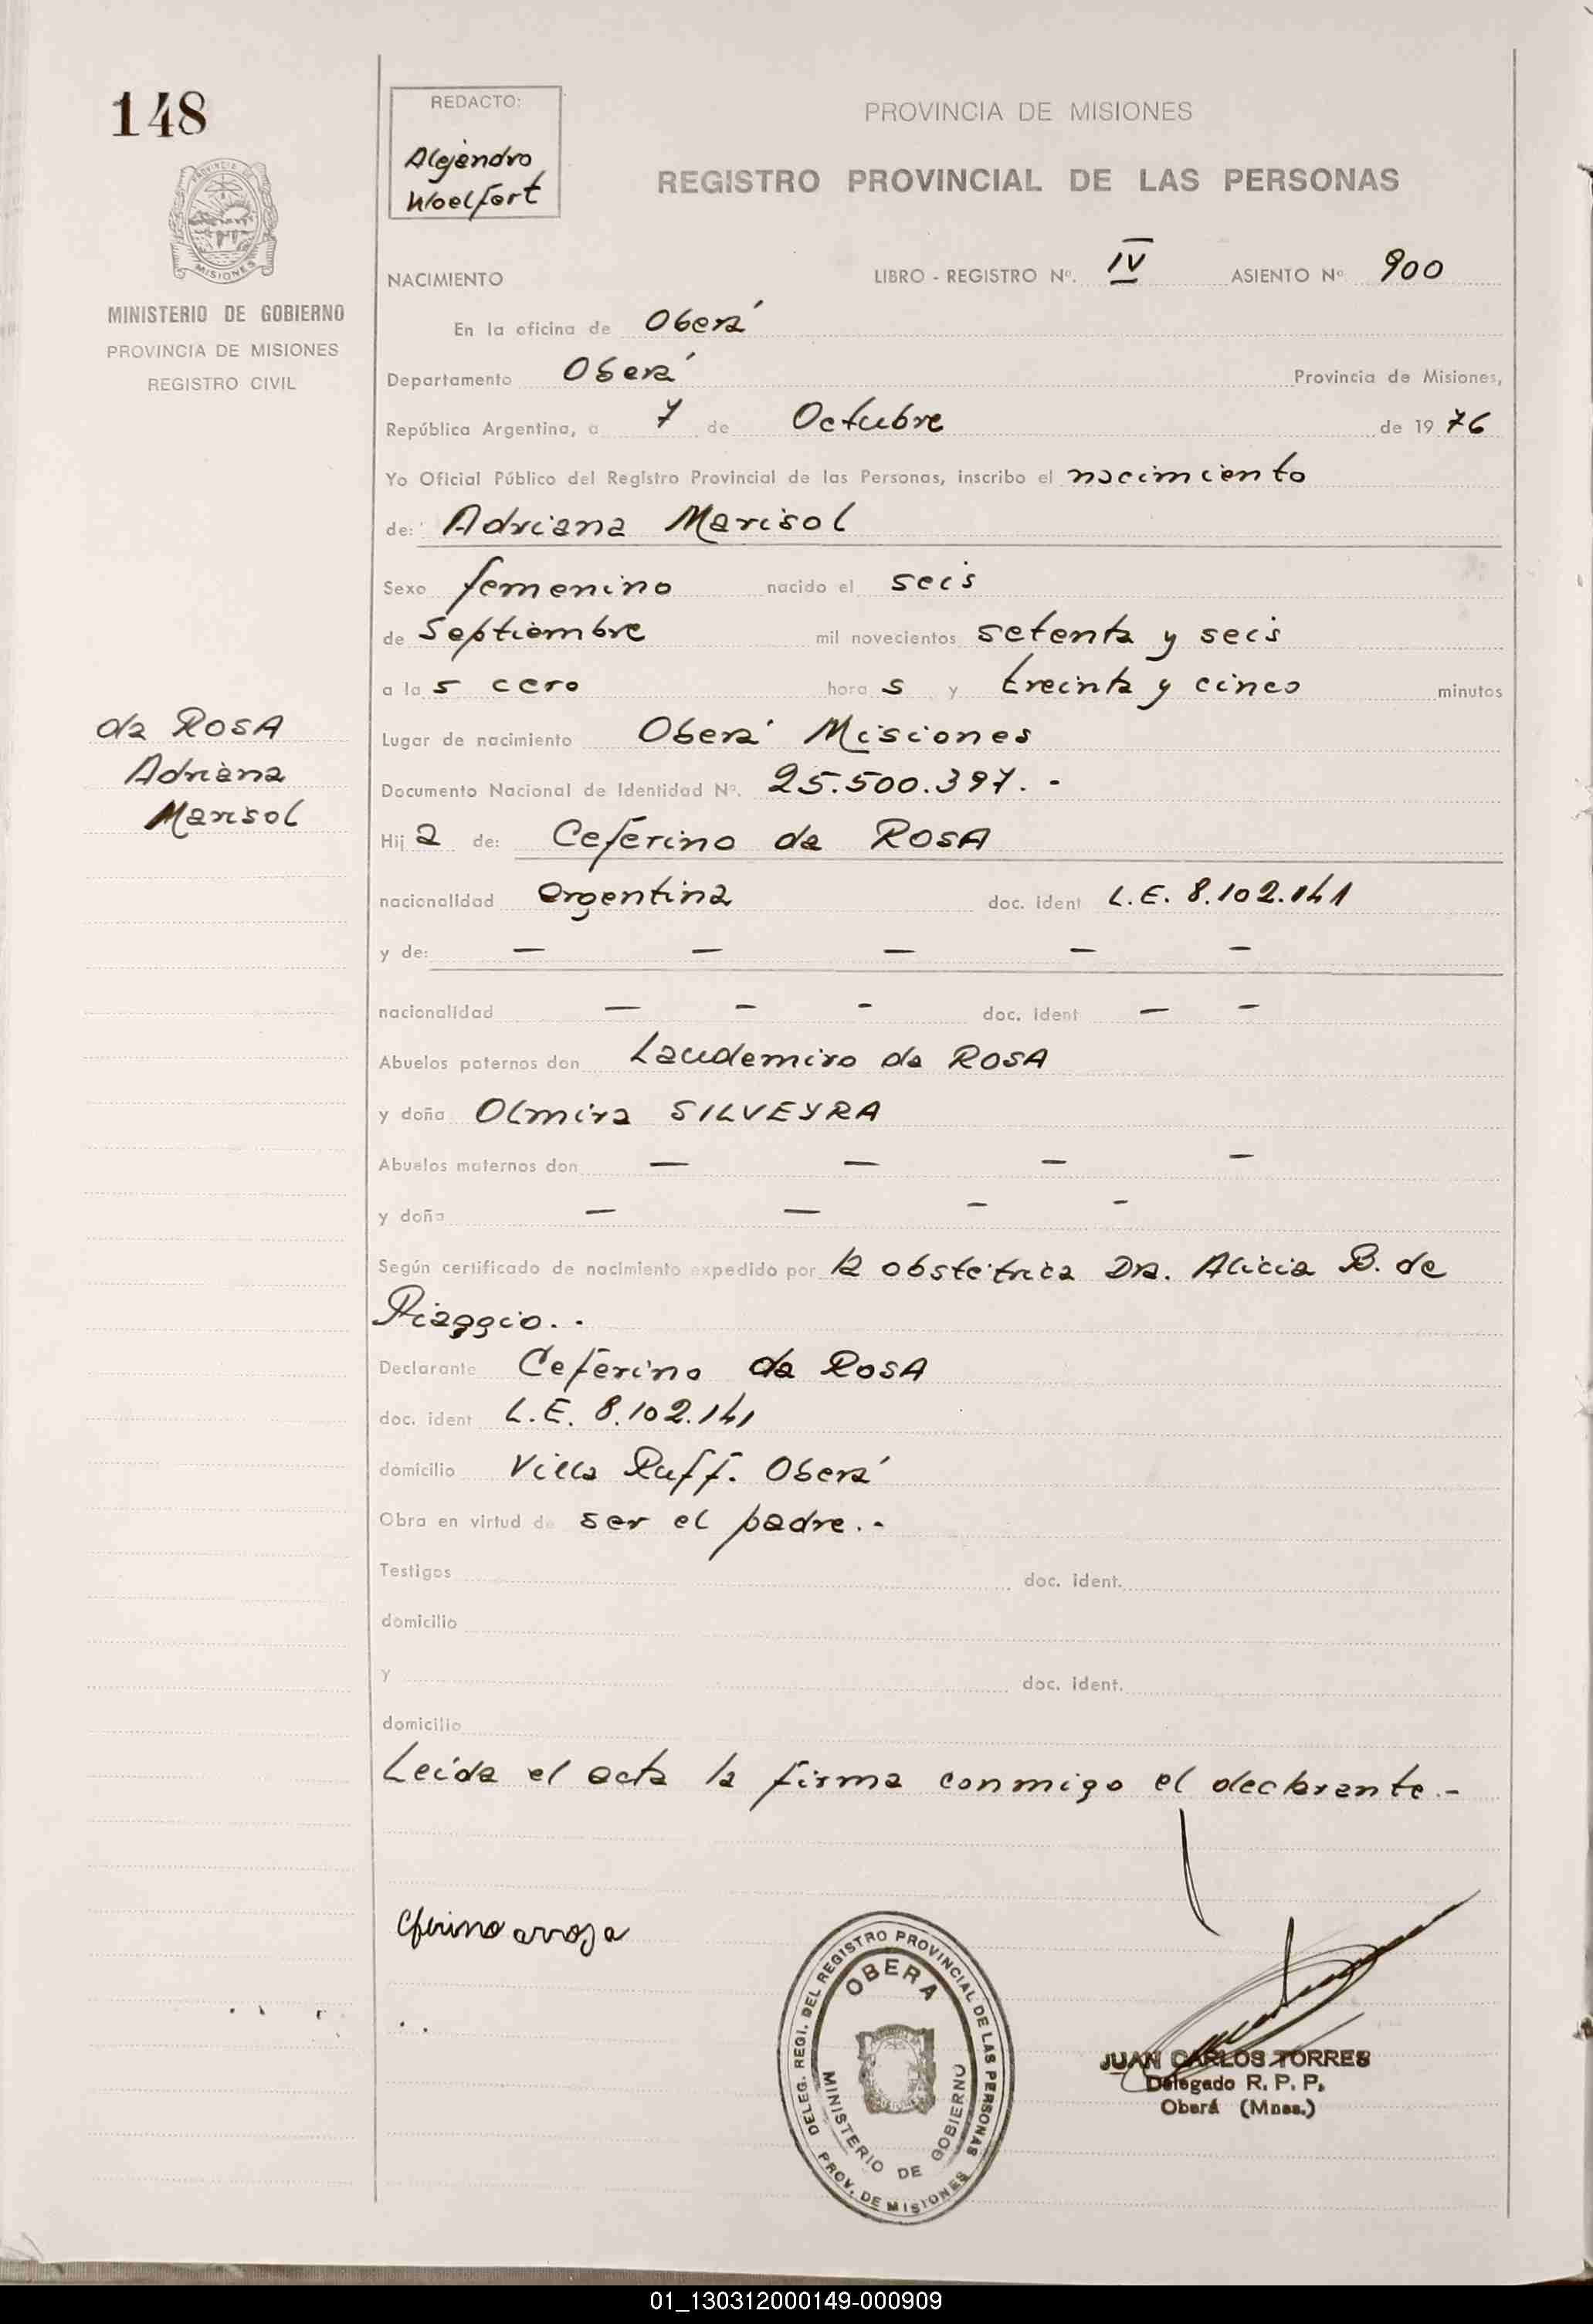 148
REDACTO:
Alejandro
Woelfert
PROVINCIA DE MISIONES
REGISTRO PROVINCIAL DE LAS PERSONAS
MISIONES
MINISTERIO DE GOBIERNO
PROVINCIA DE MISIONES
REGISTRO CIVIL
NACIMIENTO LIBRO - REGISTRO Nº. IV ASIENTO Nº 900
En la oficina de Oberá
Departamento Oberá Provincia de Misiones,
República Argentina, a 7 de Octubre de 19 76
Yo Oficial Público del Registro Provincial de las Personas, inscribo el nacimiento
de: Adriana Marisol
Sexo femenino nacido el seis
de Septiembre mil novecientos setenta y seis
a la s cero hora s y treinta y cinco minutos
da ROSA
Adriana
Marisol
Lugar de nacimiento Oberá Misiones
Documento Nacional de Identidad Nº. 25.500.397. -
Hij a de: Ceferino da ROSA
nacionalidad argentina doc. ident L.E. 8.102.141
y de: — — — — —
nacionalidad — - - doc. ident — —
Abuelos paternos don Laudemiro da ROSA
y doña Olmira SILVEYRA
Abuelos maternos don — — — —
y doña — — - -
Según certificado de nacimiento expedido por la obstétrica Dra. Alicia B. de
Piaggio. -
Declarante Ceferino da ROSA
doc. ident L.E. 8.102.141
domicilio Villa Ruff. Oberá
Obra en virtud de ser el padre. -
Testigos doc. ident.
domicilio
y doc. ident.
domicilio
Leída el acta la firma conmigo el declarante. -
DELEG. REGI. DEL REGISTRO PROVINCIAL DE LAS PERSONAS
OBERA
MINISTERIO DE GOBIERNO
PROV. DE MISIONES
JUAN CARLOS TORRES
Delegado R. P. P.
Oberá (Mnes.)
01_130312000149-000909